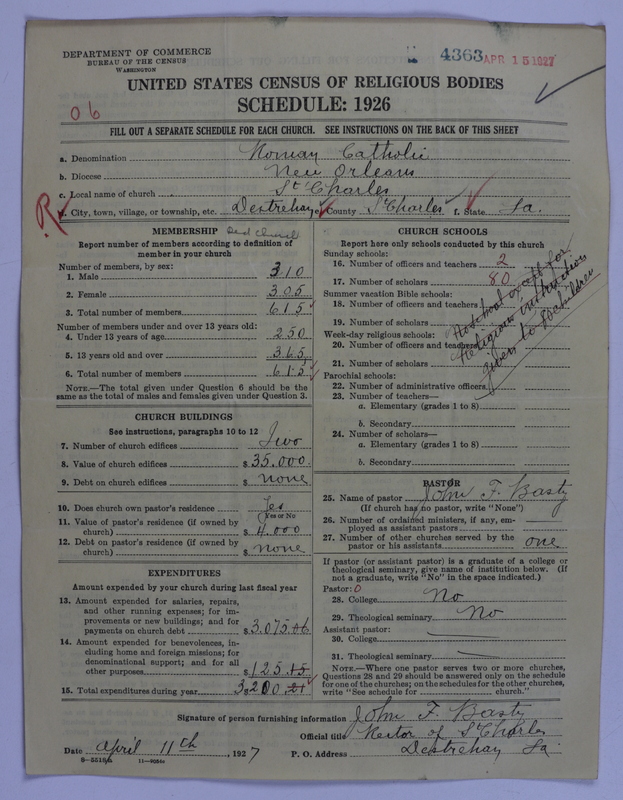 DEPARTMENT OF COMMERCE
BUREAU OF THE CENSUS
WASHINGTON
4363 APR 15 1927
UNITED STATES CENSUS OF RELIGIOUS BODIES
SCHEDULE: 1926
06
FILL OUT A SEPARATE SCHEDULE FOR EACH CHURCH. SEE INSTRUCTIONS ON THE BACK OF THIS SHEET
a. Denomination Roman Catholic
b. Diocese New Orleans
c. Local name of church St Charles
R
d. City, town, village, or township, etc. Destrehan e. County St Charles f. State La.
MEMBERSHIP
Report number of members according to definition of member in your church
Number of members, by sex:
1. Male 310
2. Female 305
3. Total number of members 615
Number of members under and over 13 years old:
4. Under 13 years of age 250
5. 13 years old and over 365
6. Total number of members 615
NOTE.—The total given under Question 6 should be
same as the total of males and females given under Question 3.
CHURCH BUILDINGS
See instructions, paragraphs 10 to 12
7. Number of church edifices Two
8. Value of church edifices $35.000
9. Debt on church edifices $ none
10. Does church own pastor's residence? Yes
Yes or No
11. Value of pastor's residence (if owned by
church) $4.000
12. Debt on pastor's residence (if owned by
church) $ none
EXPENDITURES
Amount expended by your church during last fiscal year
13. Amount expended for salaries, repairs,
and other running expenses; for im-
provements or new buildings; and for
payments on church debt $3.075.06
14. Amount expended for benevolences, in-
cluding home and foreign missions; for
denominational support; and for all
other purposes $125.15
15. Total expenditures during year 3200.21
CHURCH SCHOOLS
Report here only schools conducted by this church
Sunday schools:
16. Number of officers and teachers 2
17. Number of scholars 80
Summer vacation Bible schools:
18. Number of officers and teachers
19. Number of scholars
Week-day religious schools:
20. Number of officers and teachers
21. Number of scholars
Parochial schools:
22. Number of administrative officers
23. Number of teachers—
a. Elementary (grades 1 to 8)
b. Secondary
24. Number of scholars—
a. Elementary (grades 1 to 8)
b. Secondary
No school except for
religious instruction
given to 80 children
PASTOR
25. Name of pastor John F. Basty
(If church has no pastor, write "None")
26. Number of ordained ministers, if any, em-
ployed as assistant pastors
27. Number of other churches served by the
pastor or his assistants one
If pastor (or assistant pastor) is a graduate of a college or
theological seminary, give name of institution below. (If
not a graduate, write "No" in the space indicated.)
Pastor: 0
28. College No
29. Theological seminary No
Assistant pastor:
30. College
31. Theological seminary
NOTE.—Where one pastor serves two or more churches,
Questions 28 and 29 should be answered only on the schedule
for one of the churches; on the schedules for the other churches,
write "See schedule for church."
Signature of person furnishing information John F. Basty
Official title Rector of St Charles
Date April 11th, 1927 P. O. Address Destrehay La.
11—9054a